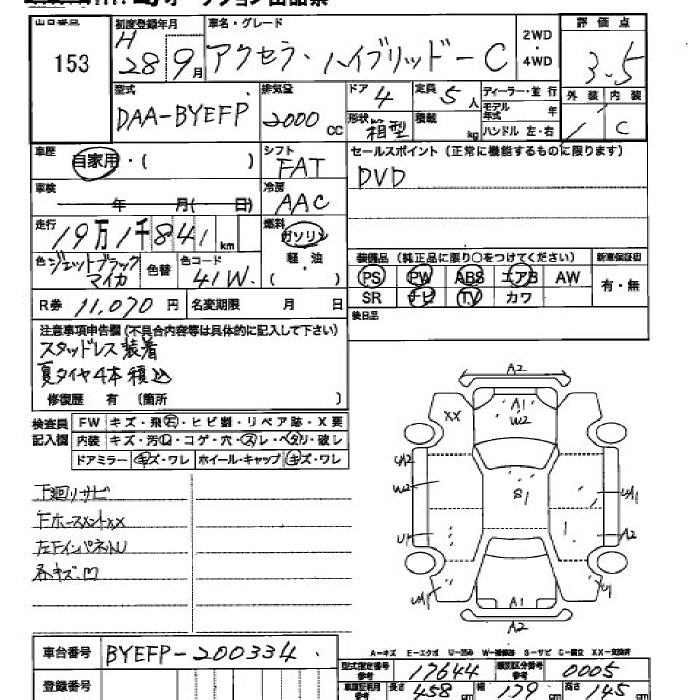 153
初度登録年月
H 28 9月
車名・グレード
アクセラ・ハイブリッドーC
2WD
・
4WD
評価点
3.5
外装 内装
C
型式
DAA-BYEFP
排気量
2000 CC
ドア 4
定員 5人
形状 箱型
積載 kg
ディーラー・並行
モデル年式 年
ハンドル 左・右
車歴
自家用・( )
シフト
FAT
車検
年 月( 日)
冷房
AAC
走行
19万1千841km
燃料
ガソリン
軽・油
( )
色 ジェットブラックマイカ
色替
色コード 41W
R券 11,070円
名変期限 月 日
セールスポイント(正常に機能するものに限ります)
DVD
装備品(純正品に限り○をつけてください)
新車保証書
PS PW ABS エアB AW
有・無
SR ナビ TV カワ
後日品
注意事項申告欄(不具合内容等は具体的に記入して下さい)
スタッドレス装着
夏タイヤ4本積込
修復歴 有 (箇所 )
検査員記入欄
FW キズ・飛石・ヒビ割・リペア跡・X要
内装 キズ・汚レ・コゲ・穴・スレ・ヘタリ・破レ
ドアミラー キズ・ワレ ホイール・キャップ キズ・ワレ
下廻りサビ
A2
XX
A1
W2
W2
S1
A2
A1
A2
A-キズ E-エクボ U-凹み W-補修跡 S-サビ C-腐蝕 XX-交換済
車台番号
BYEFP-200334
登録番号
型式指定番号 参考 17644
類別区分番号 参考 0005
長さ 458 cm
幅 179 cm
高さ 145 cm